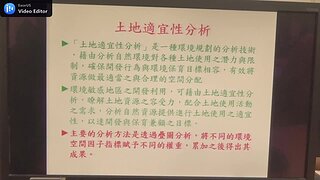 EaseUS
Video Editor
土地適宜性分析
➤「土地適宜性分析」是一種環境規劃的分析技術,
藉由分析自然環境對各種土地使用之潛力與限
制,確保開發行為與環境保育目標相容,有效將
資源做最適當之與合理的空間分配
➤環境敏感地區之開發利用,可藉由土地適宜性分
析,瞭解土地資源之容受力,配合土地使用活動
之需求,分析自然資源提供進行土地使用之適宜
性,以達開發與保育兼顧之目標。
➤主要的分析方法是透過疊圖分析,將不同的環境
空間因子指標賦予不同的權重,累加之後得出其
成果。